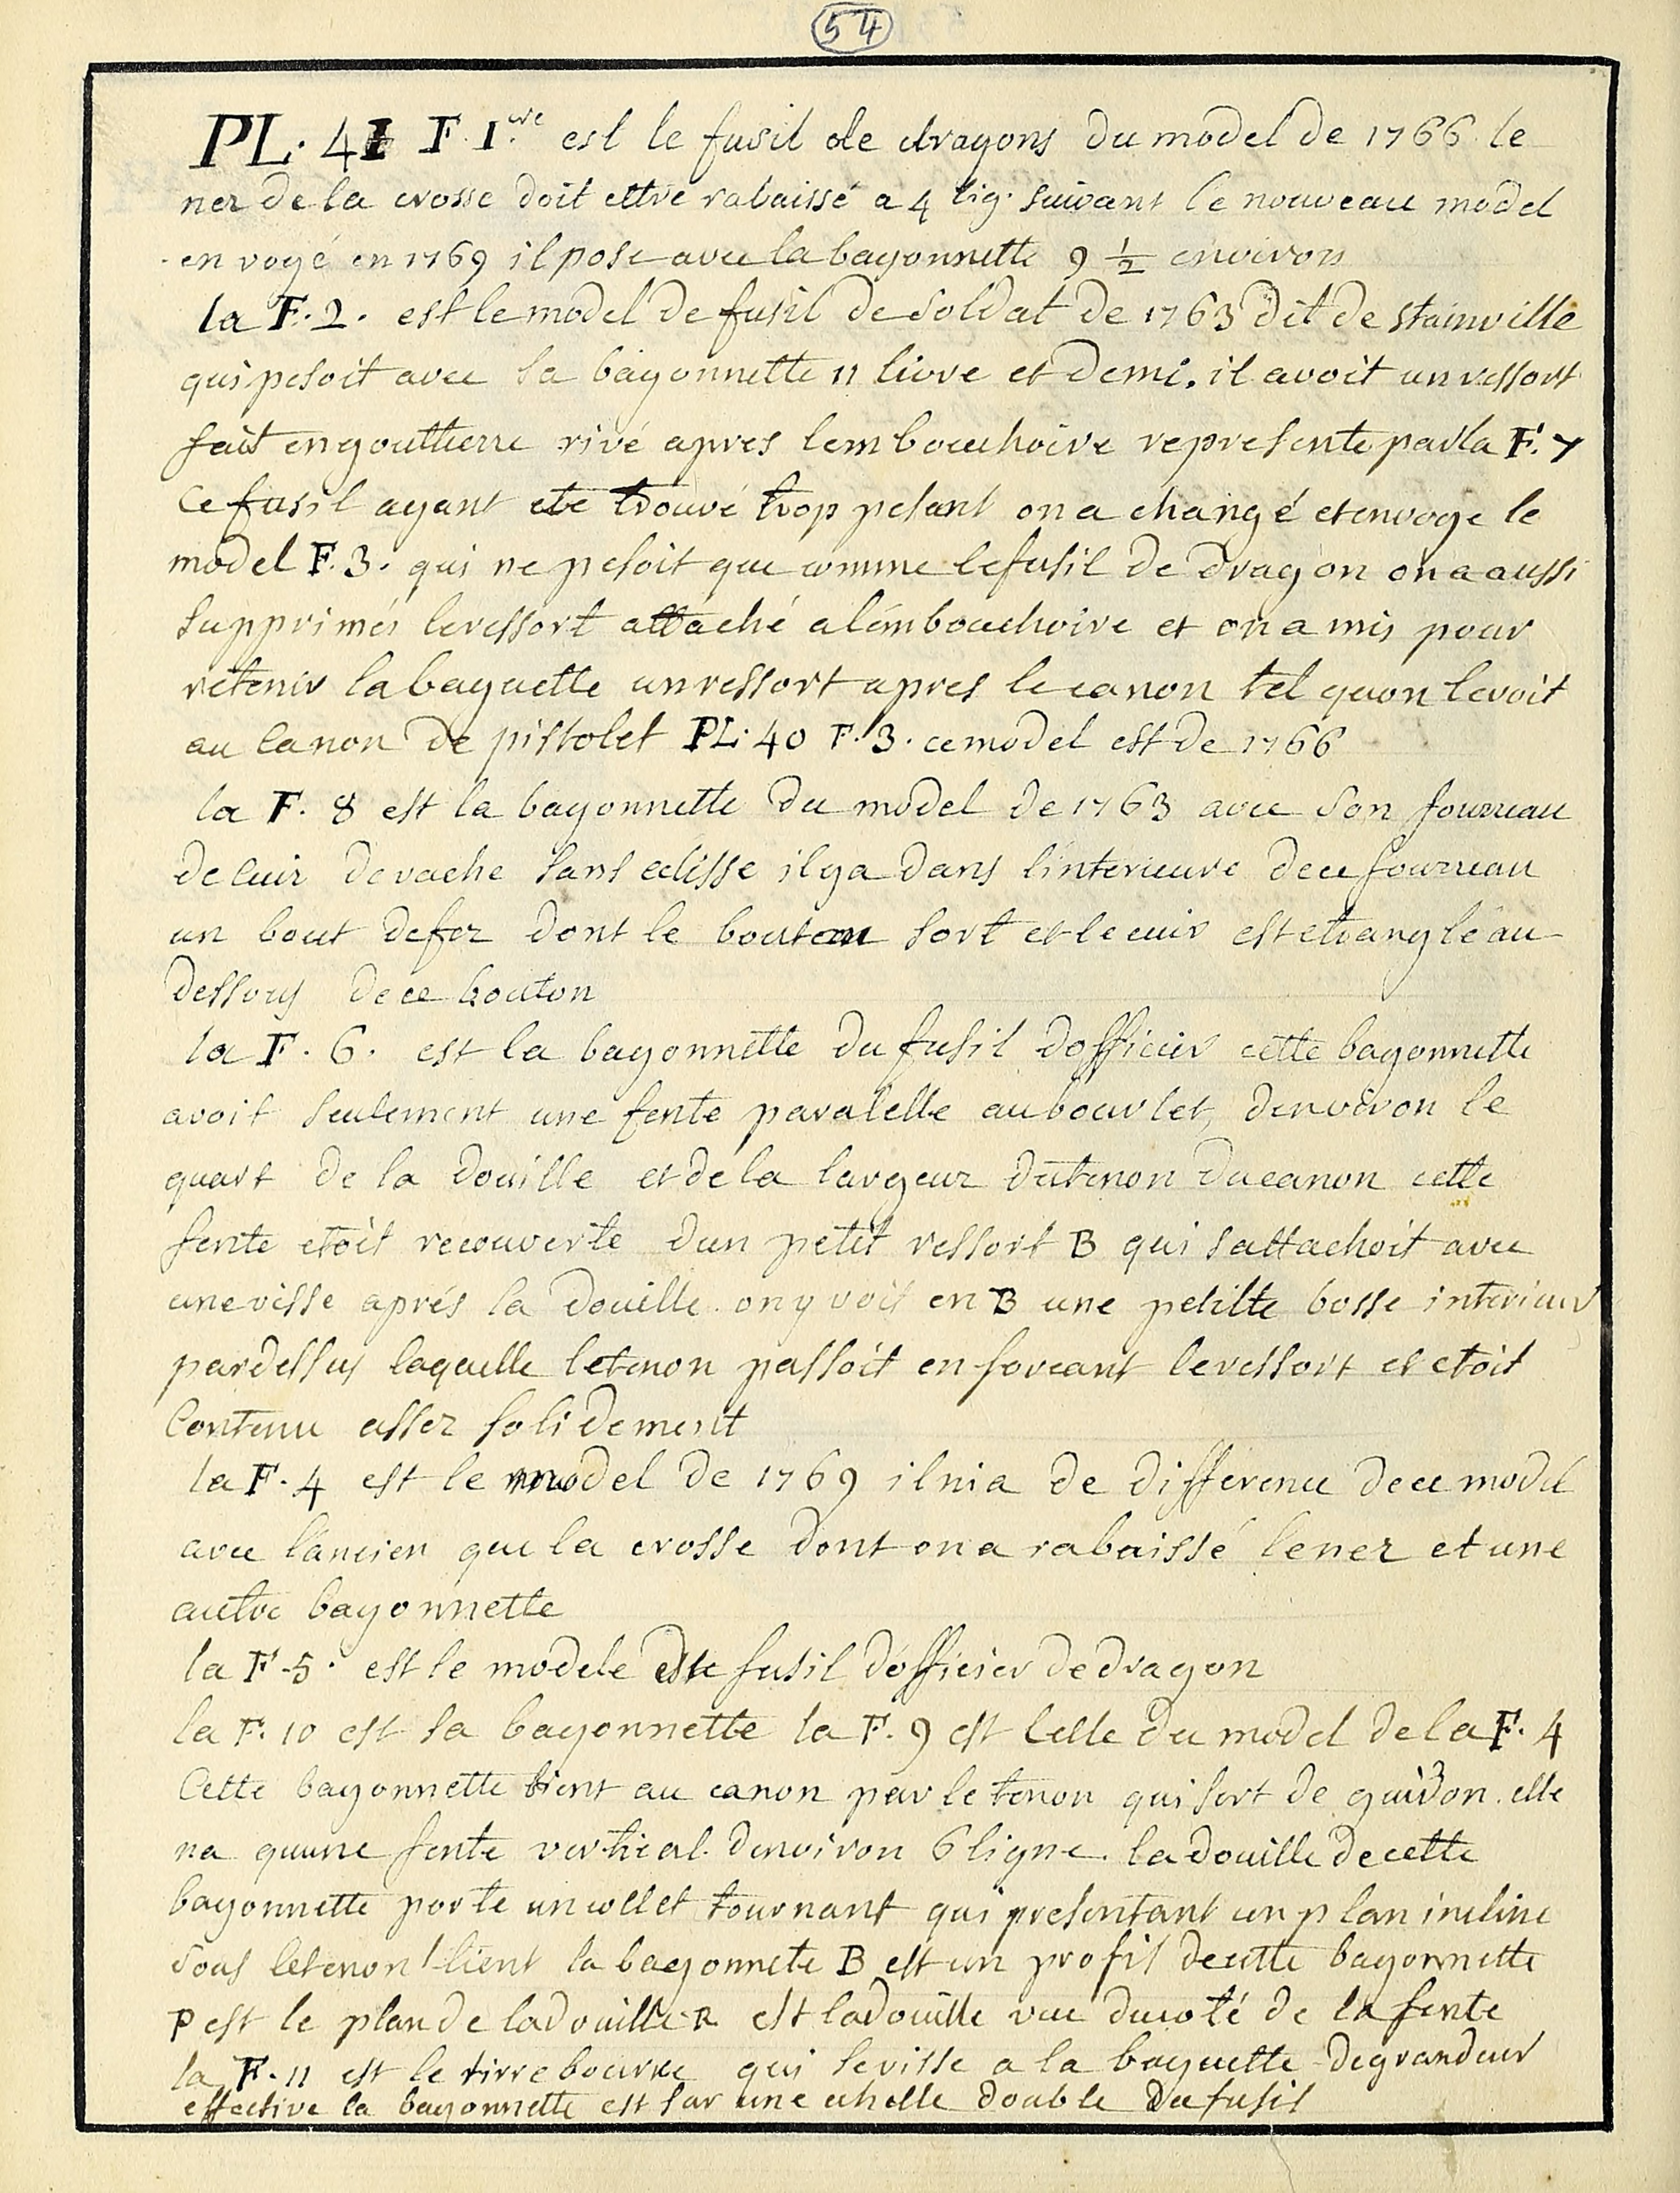 54
PL. 41 F. 1.re est le fusil de dragons du model de 1766 le
nez de la crosse doit ettre rabaissé a 4 lig. suivant le nouveau model
envoyé en 1769 il pose avec la bayonnette 9 1/2 environs
la F. 2. est le model de fusil de soldat de 1763 dit de stainville
qui pesoit avec sa bayonnette 11 livre et demi. il avoit un ressort
fait en gouttierre rivé apres lembouchoire represente par la F. 7
Ce fusil ayant ete trouvé trop pesant on a changé et envoye le
model F. 3. qui ne pesoit que comme le fusil de dragon on a aussi
supprimés le ressort attaché a lémbouchoire et on a mis pour
retenir la baguette un ressort apres le canon tel quon le voit
au canon de pistolet PL: 40 F. 3. ce model est de 1766
la F. 8 est la bayonnette du model de 1763 avec son fourreau
de cuir de vache sans eclisse il ya dans l'interieure de ce fourreau
un bout de fer dont le bouton sort et le cuir est etranglé au
dessous de ce bouton
la F. 6. est la bayonnette du fusil dofficier cette bayonnette
avoit seulement une fente paralelle au bourlet, denviron le
quart de la douille et de la largeur du tenon du canon cette
fente etoit recouverte dun petit ressort B qui sattachoit avec
une visse aprés la douille. on y voit en B une petitte bosse interieur
par dessus laquelle le tenon passoit en forceant le ressort et etoit
Contenu assez solidement
la F. 4 est le model de 1769 il nia de difference de ce model
avec láncien que la crosse dont on a rabaissé le nez et une
autre bayonnette
la F. 5. est le modele du fusil dófficier de dragon
la F. 10 est sa bayonnette la F. 9 est Celle du model de la F. 4
Cette bayonnette tient au canon par le tenon qui sert de guidon. elle
na quune fente vertical. denviron 6 ligne. la douille de cette
bayonnette porte un collet tournant qui presentant un plan incliné
sous le tenon tient la bagonnete B est un profil de cette bayonnette
P est le plan de la douille R est la douille vue du coté de la fente
la F. 11 est le tirre bourre qui se visse a la baguette de grandeur
effective la bayonnette est sur une echelle double du fusil